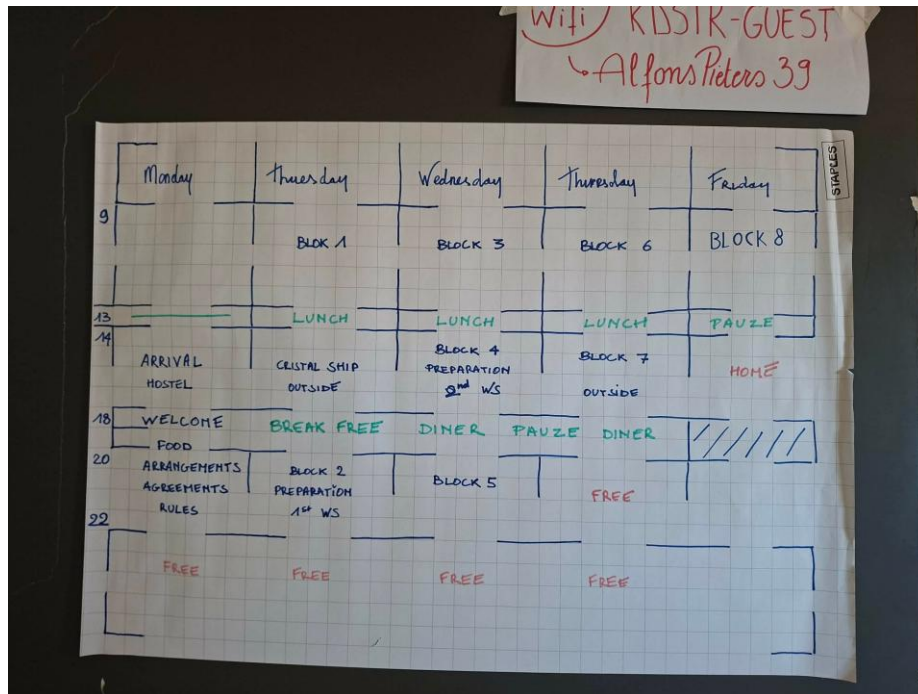 Wifi KDSTR-GUEST
AlfonsPieters 39
STAPLES
Monday Thuesday Wednesday Thuresday Friday
9
BLOK 1 BLOCK 3 BLOCK 6 BLOCK 8
13 LUNCH LUNCH LUNCH PAUZE
14
ARRIVAL
HOSTEL
CRISTAL SHIP
OUTSIDE
BLOCK 4
PREPARATION
2nd WS
BLOCK 7
OUTSIDE
HOME
18 WELCOME
FOOD
BREAK FREE DINER PAUZE DINER
20
ARRANGEMENTS
AGREEMENTS
RULES
BLOCK 2
PREPARATION
1st WS
BLOCK 5
FREE
22
FREE FREE FREE FREE